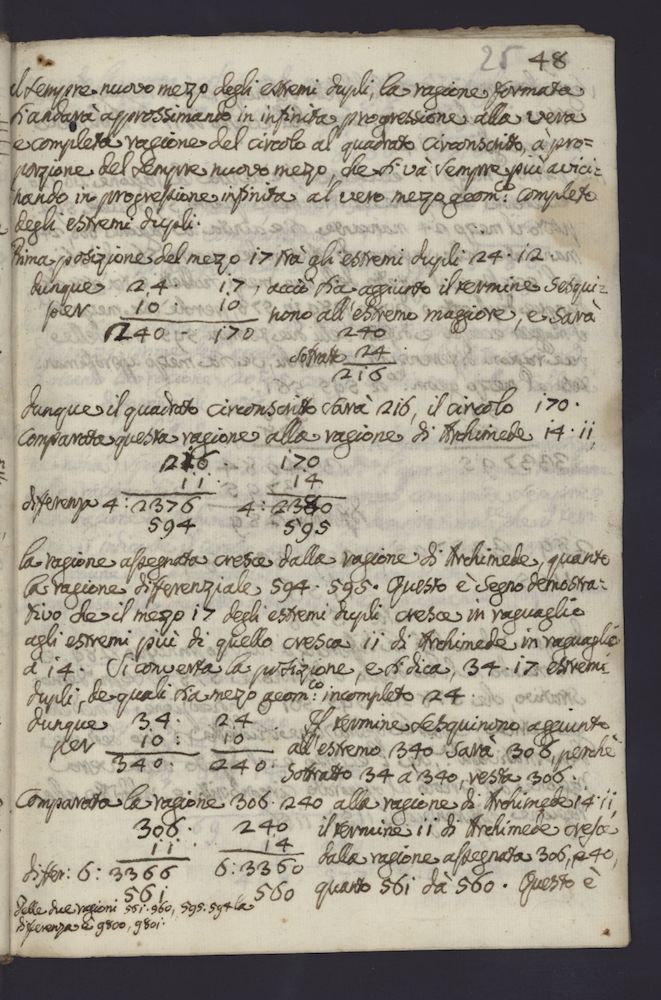 25 48
il sempre nuovo mezzo degli estremi dupli, la ragione formata
si andarà approssimando in infinita progressione alla vera
e completa ragione del circolo al quadrato circonscritto, à pro=
porzione del sempre nuovo mezzo, che si và sempre più avici=
nando in progressione infinita al vero mezzo geom:º completo
degli estremi dupli.
Prima posizione del mezo 17 trà gli estremi dupli 24. 12
dunque 24. 17, acciò sia aggiunto il termine sesqui=
per 10. 10 nono all'estremo maggiore, e sarà
240 - 170 240
sottratto 24
216
dunque il quadrato circonscritto sarà 216, il circolo 170.
Comparata questa ragione alla ragione di Archimede 14. 11,
216 170
11. 14
differenza 4: 2376 4: 2380
594 595
la ragione assegnata cresce dalla ragione di Archimede, quanto
la ragione differenziale 594. 595. Questo è segno demostra=
tivo che il mezzo 17 degli estremi dupli cresce in raguaglio
agli estremi più di quello cresca 11 di Archimede in raguaglio
à 14. Si converta la posizione, e si dica, 34. 17 estremi
dupli, de quali sia mezo geom:co incompleto 24.
dunque 34. 24 Il termine sesquinono aggiunto
per 10: 10 all'estremo 340 sarà 306, perchè
340. 240. sottratto 34 à 340, resta 306.
Comparata la ragione 306. 240 alla ragione di Archimede 14. 11,
306. 240 il termine 11 di Archimede cresce
11. 14 dalla ragione assegnata 306, 240,
differ: 6: 3366 6: 3360
561 560 quanto 561 dà 560. Questo è
Delle due ragioni 561. 560, 595. 594 la
differenza è 9800, 9801.